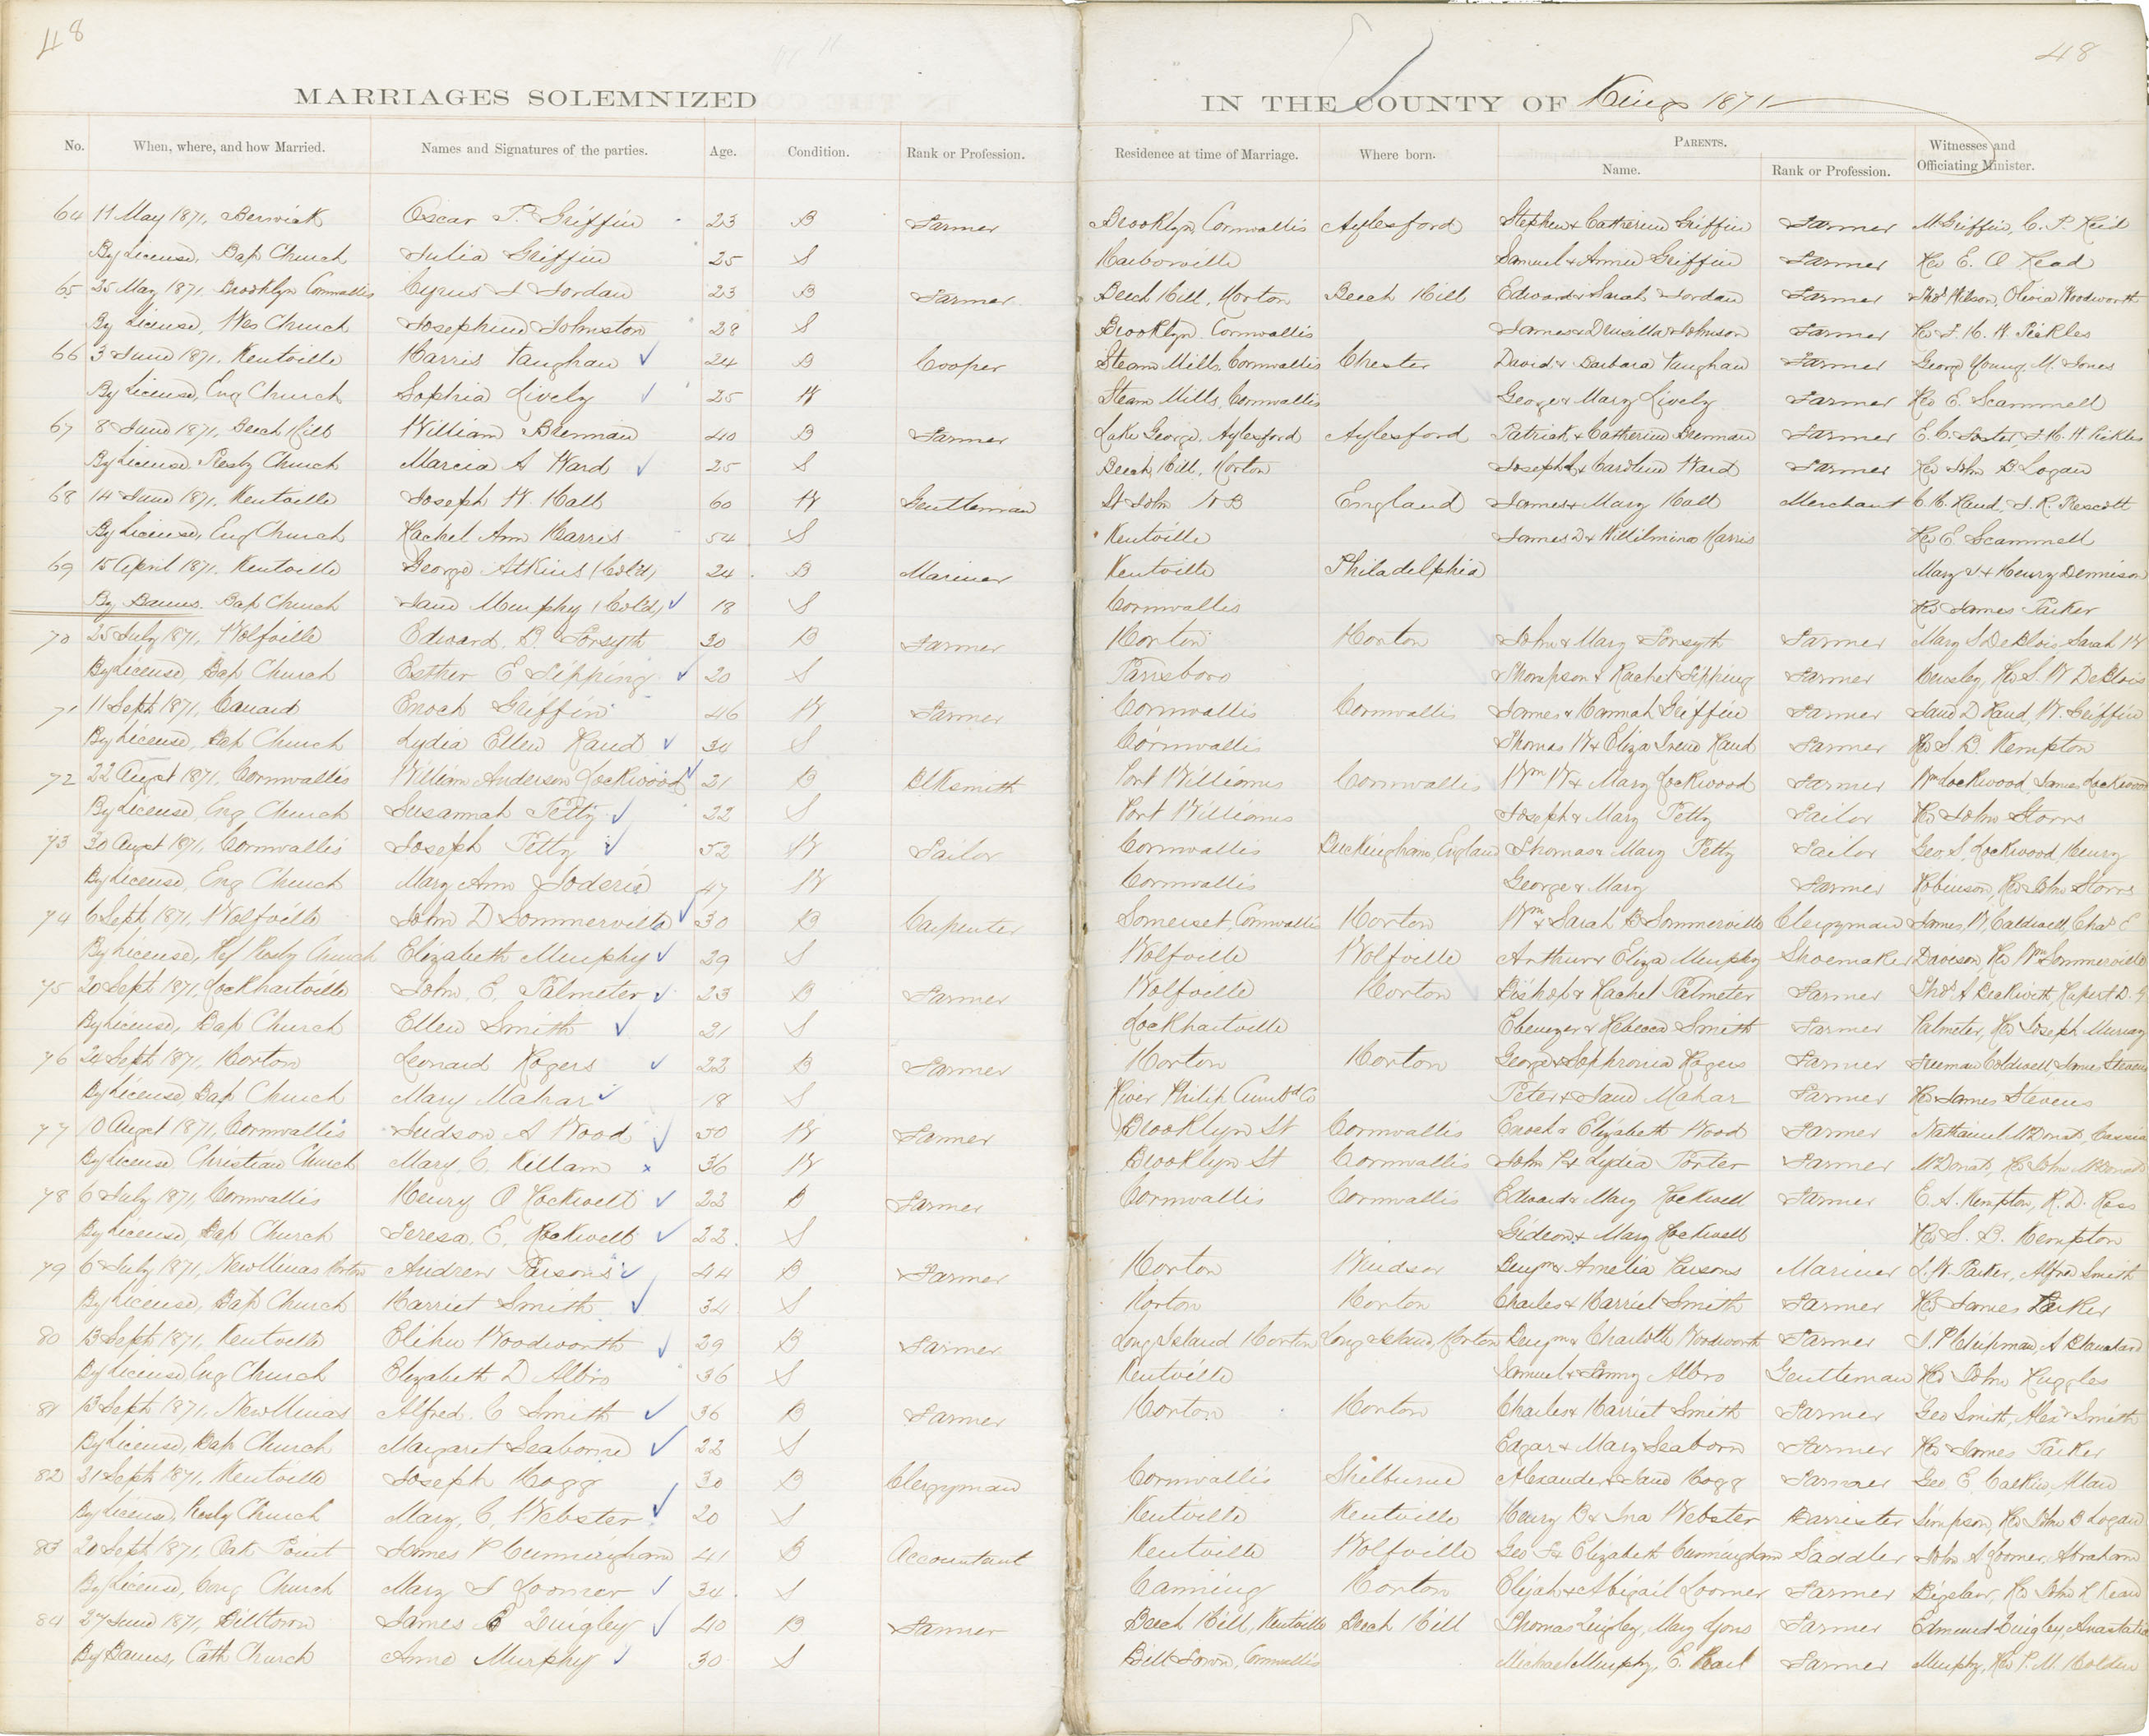 48
48
MARRIAGES SOLEMNIZED IN THE COUNTY OF Kings 1871
No. When, where, and how Married. Names and Signatures of the parties. Age. Condition. Rank or Profession. Residence at time of Marriage. Where born. PARENTS. Name. Rank or Profession. Witnesses and Officiating Minister.
64 11 May 1871, Berwick Oscar P. Griffin 23 B Farmer Brooklyn, Cornwallis Aylesford Stephen & Catherine Griffin Farmer M Griffin, C. P. Reid
By License, Bap Church Julia Griffin 25 S Harborville Samuel & Annie Griffin Farmer Rev E. O Read
65 25 May 1871. Brooklyn Cornwallis Cyrus I Jordan 23 B Farmer Beech Hill, Horton Beech Hill Edward & Sarah Jordan Farmer Thos Wilson, Olivia Woodworth
By License, Wes Church Josephine Johnston 28 S Brooklyn Cornwallis James & Drusilla Johnson Farmer Rev F. H. W. Pickles
66 3 June 1871. Kentville Harris Vaughan 24 B Cooper Steam Mills, Cornwallis Chester David & Barbara Vaughan Farmer George Young, M. Jones
By License, Eng Church Sophia Lively 25 W Steam Mills, Cornwallis George & Mary Lively Farmer Rev E. Scammell
67 8 June 1871. Beech Hill William Brennan 40 B Farmer Lake George, Aylesford Aylesford Patrick & Catherine Brennan Farmer E. C. Foster, F. H. W. Pickles
By License. Presby Church Marcia A Ward 25 S Beech Hill, Horton Joseph L & Caroline Ward Farmer Rev John B Logan
68 14 June 1871. Kentville Joseph W. Hall 60 W Gentleman St John N B England James & Mary Hall Merchant C. C. Rand, J. R. Prescott
By License, Eng Church Rachel Ann Harris 54 S Kentville James D & Willilmina Harris Rev E Scammell
69 15 April 1871. Kentville George Atkins (Col'd) 24 B Mariner Kentville Philadelphia Mary J & Henry Dennison
By Banns. Bap Church Jane Murphy (Col'd) 18 S Cornwallis Rev James Parker
70 25 July 1871, Wolfville Edward. B. Forsyth 30 B Farmer Horton Horton John & Mary Forsyth Farmer Mary S DeBlois Sarah W
By License, Bap Church Esther E Sipping 20 S Parrsboro Thompson & Rachel Sipping Farmer Rev S. W DeBlois
71 11 Sept 1871, Canard Enoch Griffin 46 W Farmer Cornwallis Cornwallis James & Hannah Griffin Farmer Jane D Rand, W. Griffin
By License, Bap Church Lydia Ellen Rand 34 S Cornwallis Thomas W & Eliza Irene Rand Farmer Rev S. B. Kempton
72 22 Augst 1871, Cornwallis William Anderson Lockwood 21 B Blksmith Port Williams Cornwallis Wm W & Mary Lockwood Farmer Wm Lockwood, James Lockwood
By License, Eng Church Susannah Petty 22 S Port Williams Joseph & Mary Petty Sailor Rev John Storrs
73 30 Augst 1871, Cornwallis Joseph Petty 52 W Sailor Cornwallis Buckingham, England Thomas & Mary Petty Sailor Geo. S. Lockwood, Henry
By License, Eng Church Mary Ann 47 W Cornwallis George & Mary Farmer Robinson, Rev John Storrs
74 6 Sept, 1871, Wolfville John D Sommerville 30 B Carpenter Somerset, Cornwallis Horton Wm & Sarah B Sommerville Clergyman James W. Caldwell, Chas E
By License, Ref Presby Church Elizabeth Murphy 29 S Wolfville Wolfville Arthur & Eliza Murphy Shoemaker Davison, Rev Wm Sommerville
75 20 Sept 1871, Lockhartville John. E. Palmeter 23 B Farmer Wolfville Horton Bishop & Rachel Palmeter Farmer Thos A Beckwith, Rupert D. G
By License, Bap Church Ellen Smith 21 S Lockhartville Ebenezer & Rebecca Smith Farmer Palmeter, Rev Joseph Murray
76 24 Sept 1871. Horton Leonard Rogers 22 B Farmer Horton Horton George & Sophronia Rogers Farmer Freeman Coldwell, Jane Stevens
By License, Bap Church Mary Mahar 18 S River Philip Cumbd Co Peter & Jane Mahar Farmer Rev James Stevens
77 10 Augst 1871, Cornwallis Judson A Wood 30 W Farmer Brooklyn St Cornwallis Enoch & Elizabeth Wood Farmer Nathaniel McDonat, Cassia
By License, Christian Church Mary. C. Killam 36 W Brooklyn St Cornwallis John P & Lydia Porter Farmer McDonat, Rev John McDonat
78 6 July 1871, Cornwallis Henry O Rockwell 22 B Farmer Cornwallis Cornwallis Edward & Mary Rockwell Farmer E. A. Kempton, R. D. Ross
By License, Bap Church Teresa. E. Rockwell 22 S Gideon & Mary Rockwell Rev S. B. Kempton
79 6 July 1871, New Minas Horton Andrew Parsons 44 B Farmer Horton Windsor Benjmn & Amelia Parsons Mariner L. W. Parker, Alfred Smith
By License, Bap Church Harriet Smith 34 S Horton Horton Charles & Harriet Smith Farmer Rev James Parker
80 13 Sept 1871, Kentville Elihu Woodworth 29 B Farmer Long Island Horton Long Island, Horton Benjmn & Charlotte Woodworth Farmer J. P Chipman, A Blanchard
By License Eng Church Elizabeth D Albro 36 S Kentville Samuel & Fanny Albro Gentleman Rev John Ruggles
81 13 Sept 1871, New Minas Alfred. C Smith 36 B Farmer Horton Horton Charles & Harriet Smith Farmer Geo Smith, Alexr Smith
By License, Bap Church Margaret Seaborne 22 S Edgar & Mary Seaborn Farmer Rev James Parker
82 21 Sept 1871, Kentville Joseph Hogg 30 B Clergyman Cornwallis Shelburne Alexander & Jane Hogg Farmer Geo. E. Calkin, Allan
By License, Presby Church Mary. C. Webster 20 S Kentville Kentville Henry B & Ina Webster Barrister Simpson, Rev John B Logan
83 20 Sept 1871, Oak Point James P Cunningham 41 B Accountant Kentville Wolfville Geo F & Elizabeth Cunningham Saddler John A Loomer, Abraham
By License, Cong Church Mary I Loomer 34 S Canning Horton Elijah & Abigail Loomer Farmer Bigelow, Rev John R Kean
84 27 June 1871, Billtown James E Quigley 40 B Farmer Beech Hill, Kentville Beech Hill Thomas Quigley, Mary Lyons Farmer Edmund Quigley, Anastatia
By Banns, Cath Church Anne Murphy 30 S Bill Town, Cornwallis Michael Murphy, E. Farmer Murphy, Rev P. M. Holden